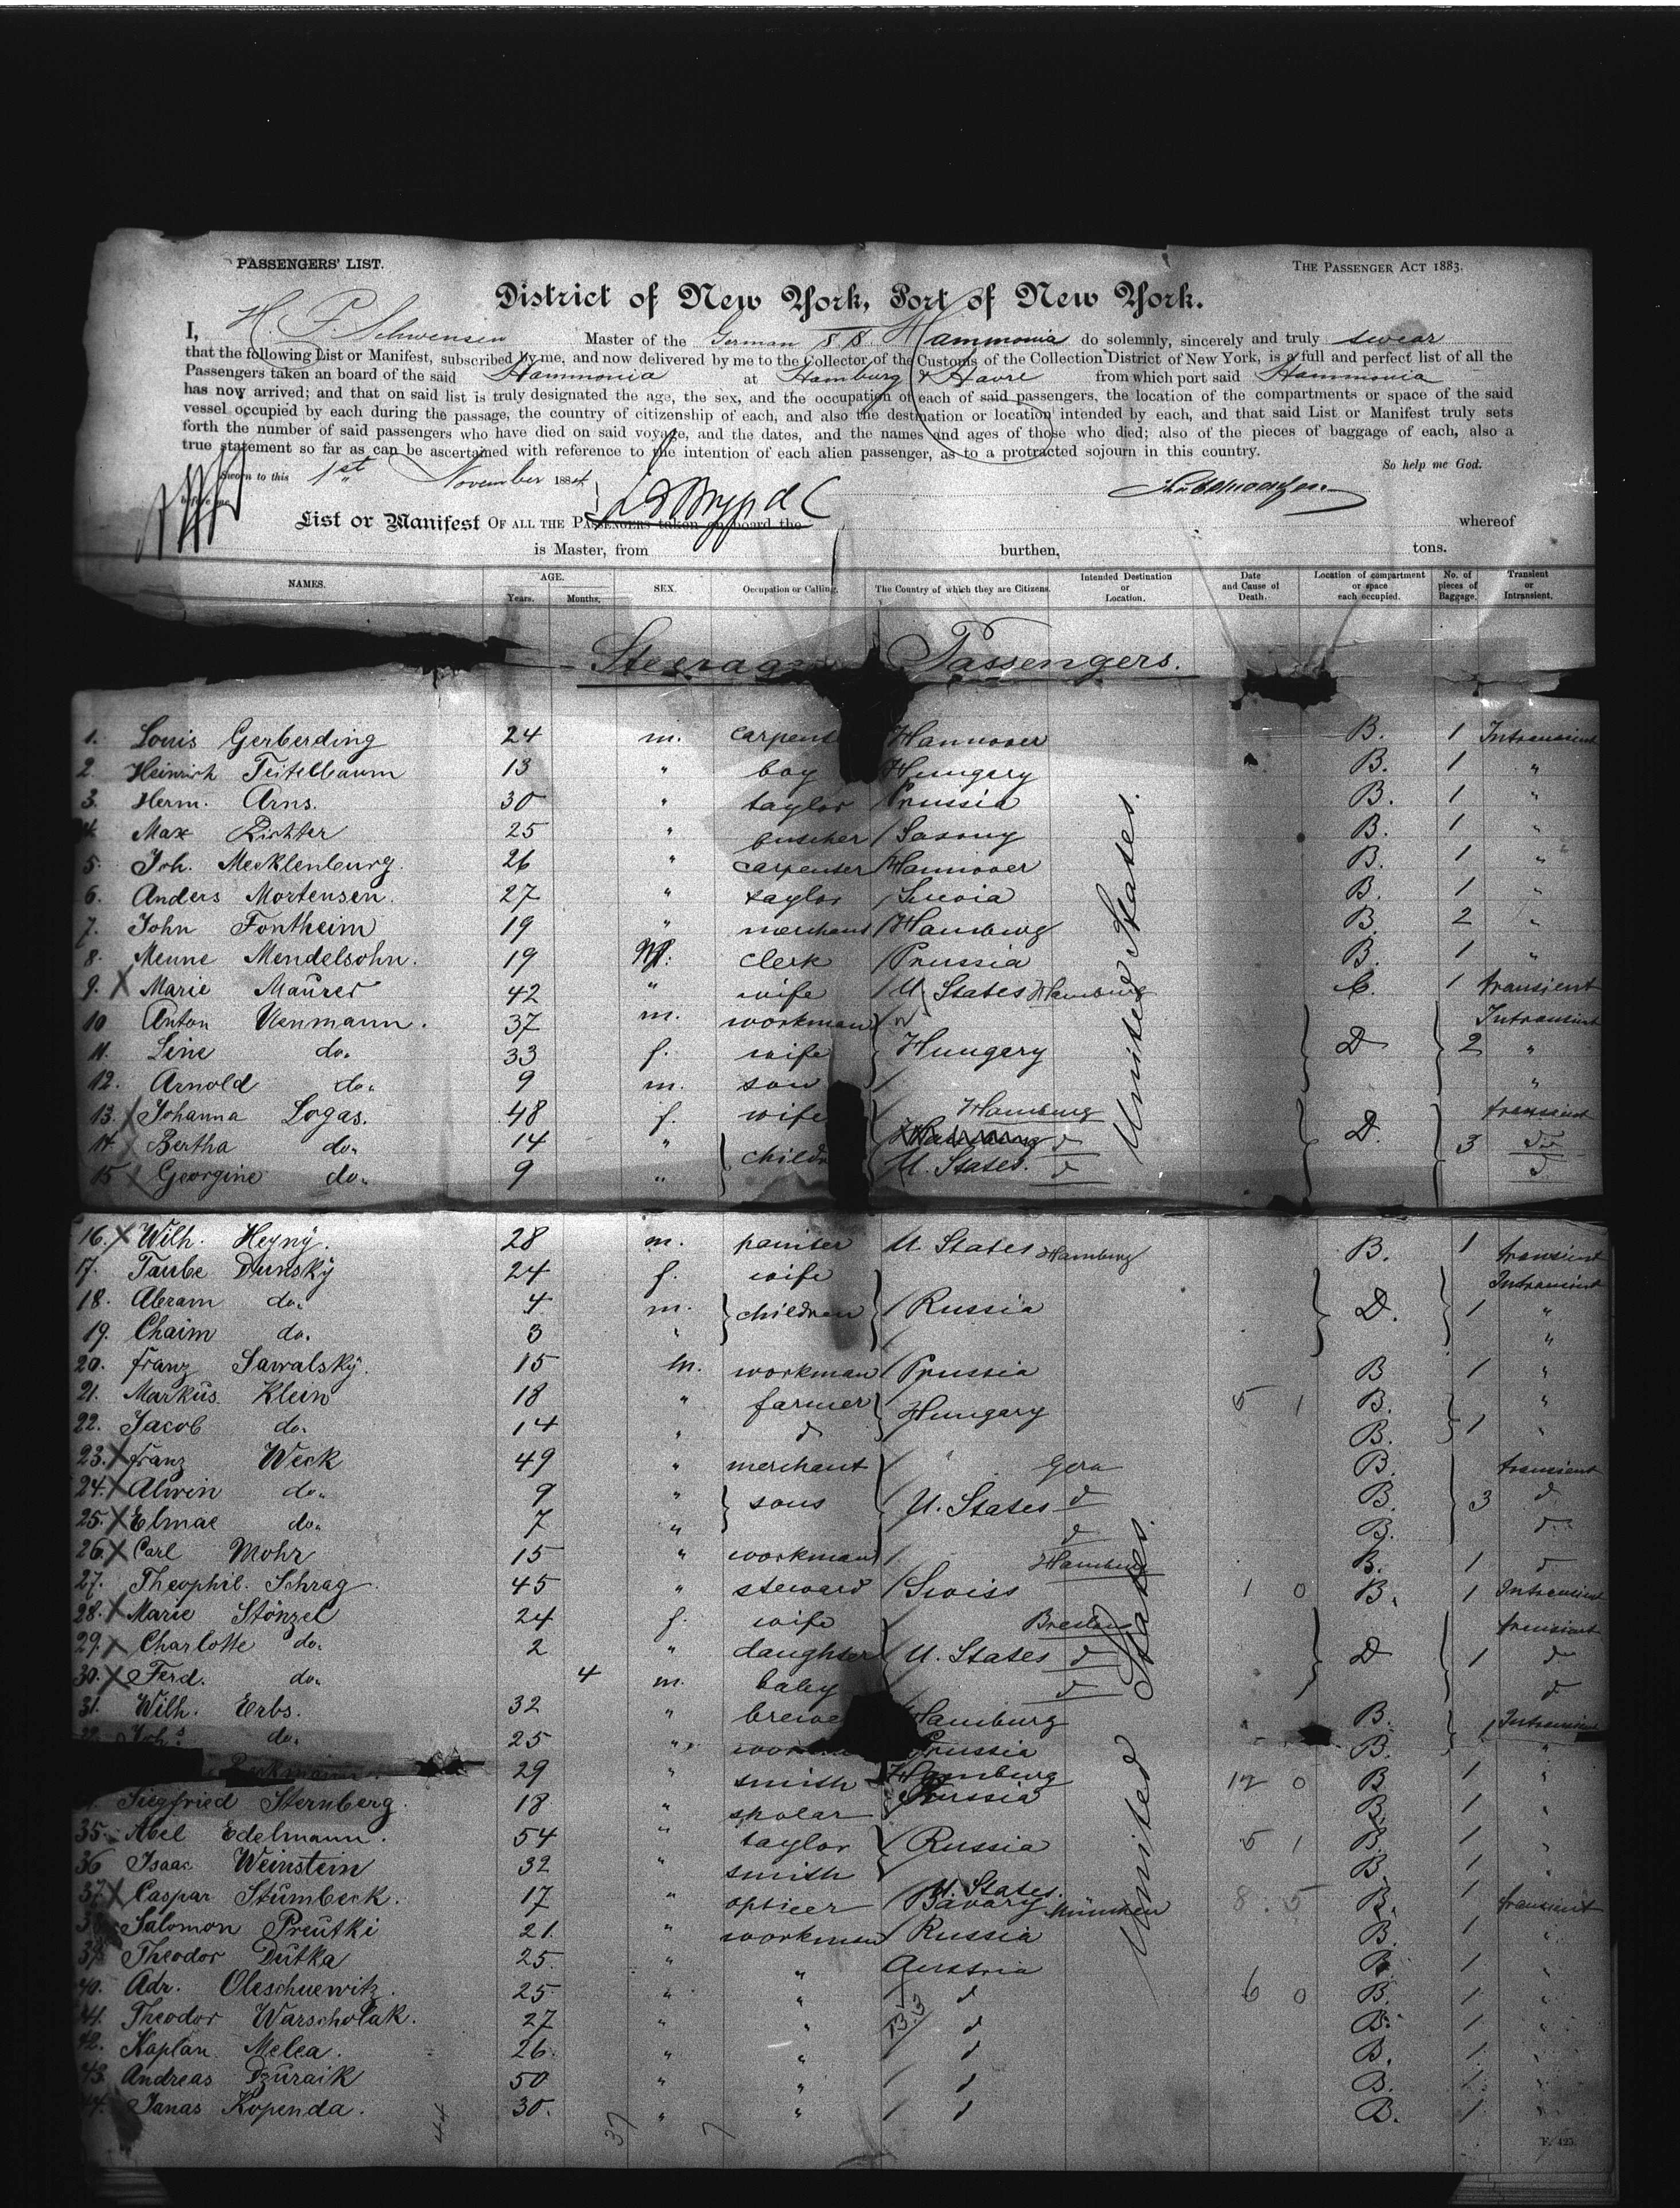 PASSENGERS' LIST.
THE PASSENGER ACT 1883.
District of New York, Port of New York.
I, H. P. Schwensen Master of the German SS. Hammonia do solemnly, sincerely and truly swear
that the following List or Manifest, subscribed by me, and now delivered by me to the Collector of the Customs of the Collection District of New York, is a full and perfect list of all the
Passengers taken an board of the said Hammonia at Hamburg & Havre from which port said Hammonia
has now arrived; and that on said list is truly designated the age, the sex, and the occupation of each of said passengers, the location of the compartments or space of the said
vessel occupied by each during the passage, the country of citizenship of each, and also the destination or location intended by each, and that said List or Manifest truly sets
forth the number of said passengers who have died on said voyage, and the dates, and the names and ages of those who died; also of the pieces of baggage of each, also a
true statement so far as can be ascertained with reference to the intention of each alien passenger, as to a protracted sojourn in this country.
So help me God.
Sworn to this 1st November 1884
before me
List or Manifest OF ALL THE PASSENGERS taken on board the whereof
is Master, from burthen, tons.
NAMES. AGE. Years. Months. SEX. Occupation or Calling. The Country of which they are Citizens. Intended Destination or Location. Date and Cause of Death. Location of compartment or space each occupied. No. of pieces of Baggage. Transient or Intransient.
Steerage Passengers.
1. Louis Gerberding 24 m. carpent Hannover B. 1 Intransient
2. Heinrich Teitelbaum 13 " boy Hungary B. 1 "
3. Herm. Arns. 30 " taylor Prussia B. 1 "
4. Max Richter 25 " butcher Saxony B. 1 "
5. Joh. Mecklenburg. 26 " carpenter Hannover B. 1 "
6. Anders Mortensen. 27 " taylor Suecia B. 1 "
7. John Fontheim 19 " merchant Hamburg B. 2 "
8. Menne Mendelsohn. 19 M. clerk Prussia B. 1 "
9. X Marie Maurer 42 " wife U States Hamburg C. 1 transient
10 Anton Uenmann. 37 m. workman Intransient
11. Line do. 33 f. wife Hungary D 2 "
12. Arnold do. 9 m. son "
13. X Johanna Logas. 48 f. wife Hamburg transient
14. X Bertha do. 14 " childr D. 3 do
15 X Georgine do. 9 " U. States. d d
United States.
16. X Wilh. Heyny. 28 m. painter U. States Hamburg B. 1 transient
17. Taube Dunsky 24 f. wife Intransient
18. Abram do. 4 m. children Russia D. 1 "
19. Chaim do. 3 " "
20. Franz Sawalsky. 15 m. workman Prussia B 1 "
21. Markus Klein 18 " farmer Hungary 5 1 B. "
22. Jacob do. 14 " d B. 1 "
23. X Franz Weck 49 " merchant Gera B. transient
24. X Alwin do. 9 " sons U. States d B. 3 d
25. X Elmae do. 7 " d B. d
26. X Carl Mohr 15 " workman Hamburg B. 1 d
27. Theophil. Schrag 45 " steward Swiss 1 0 B. 1 Intransient
28. X Marie Stönzel 24 f. wife Breslau transient
29. X Charlotte do. 2 " daughter U. States d D 1 d
30. X Ferd. do. 4 m. baby d d
31. Wilh. Erbs. 32 " brewe Hamburg B. 1 Intransient
do. 25 " Prussia B. "
29 " smith Hamburg 12 0 B 1 "
Siegfried Sternberg. 18 " sholar Prussia B. 1 "
35. Abel Edelmann. 54 " taylor Russia 5 1 B. 1 "
36 Isaac Weinstein 32 " smith B. 1 "
37. X Caspar Stümbeck. 17 " opticer U. States. Bavary München 8. 5 B. 1 transient
38. Salomon Preutki 21. " workman Russia B. 1 "
39. Theodor Dutka 25. " " Austria B. 1 "
40. Adr. Oleschuewitz. 25 " " d 6 0 B. 1 "
41. Theodor Warscholak. 27 " " d B. 1 "
42. Kaplan Melea. 26. " " d B. 1 "
43. Andreas Dzuraik 50 " " d B. 1 "
44. Janas Kopenda. 30. " " d B. 1 "
United States.
44 37 7
F. 425.